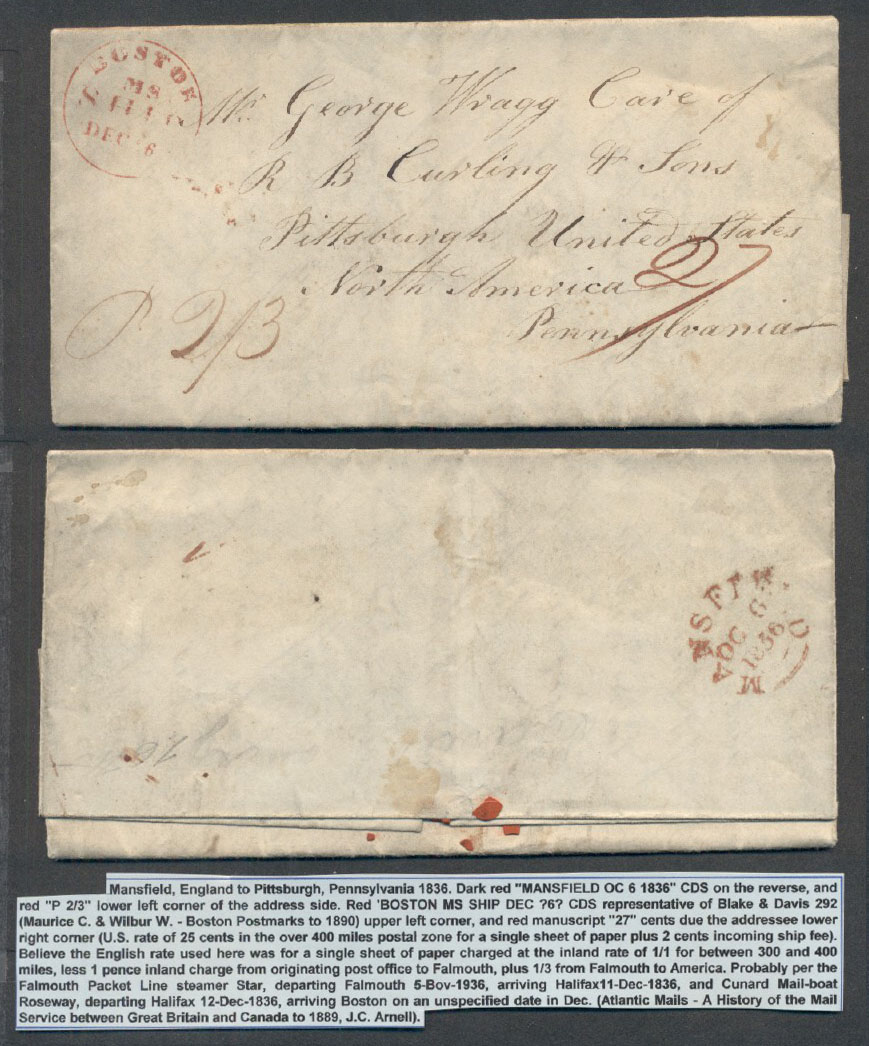 BOSTON
MS
SHIP
DEC 6
Mr. George Wragg Care of
R B Curling & Sons
Pittsburgh United States
North America
27
Pennsylvania
P 2/3
MANSFIELD
OC 6
1836
Mansfield, England to Pittsburgh, Pennsylvania 1836. Dark red "MANSFIELD OC 6 1836" CDS on the reverse, and
red "P 2/3" lower left corner of the address side. Red 'BOSTON MS SHIP DEC ?6? CDS representative of Blake & Davis 292
(Maurice C. & Wilbur W. - Boston Postmarks to 1890) upper left corner, and red manuscript "27" cents due the addressee lower
right corner (U.S. rate of 25 cents in the over 400 miles postal zone for a single sheet of paper plus 2 cents incoming ship fee).
Believe the English rate used here was for a single sheet of paper charged at the inland rate of 1/1 for between 300 and 400
miles, less 1 pence inland charge from originating post office to Falmouth, plus 1/3 from Falmouth to America. Probably per the
Falmouth Packet Line steamer Star, departing Falmouth 5-Bov-1936, arriving Halifax11-Dec-1836, and Cunard Mail-boat
Roseway, departing Halifax 12-Dec-1836, arriving Boston on an unspecified date in Dec. (Atlantic Mails - A History of the Mail
Service between Great Britain and Canada to 1889, J.C. Arnell).